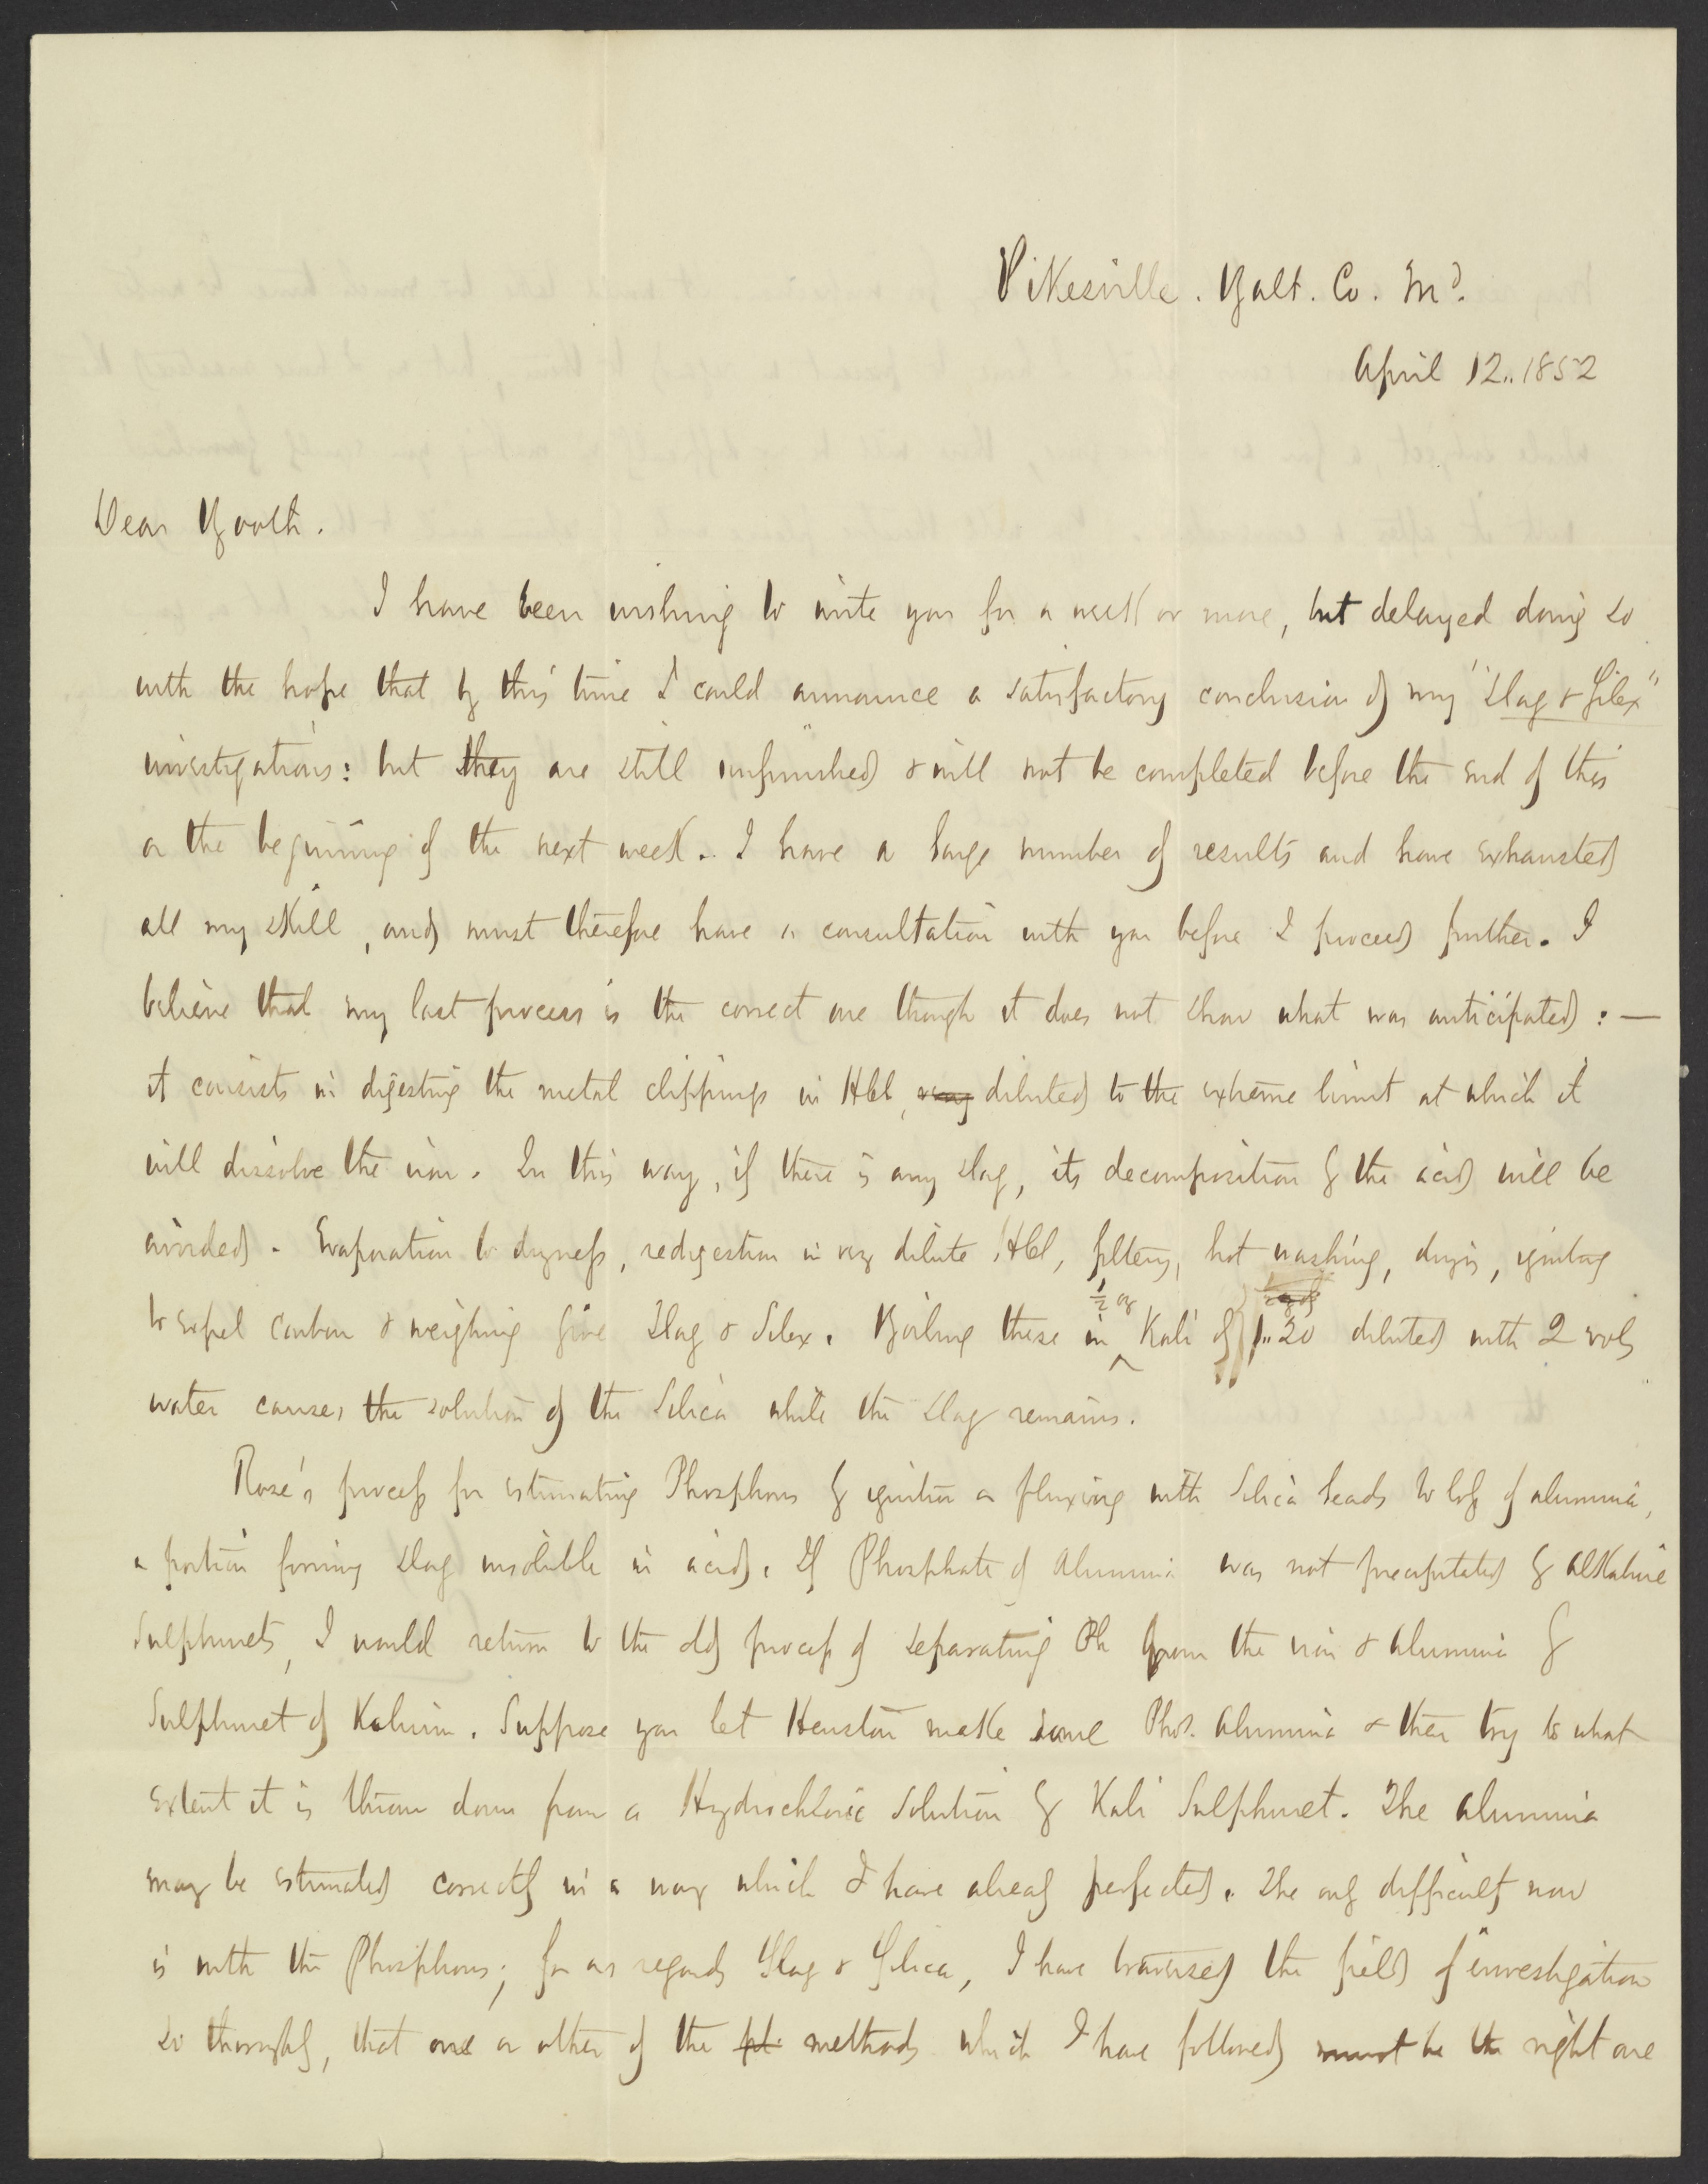 Pikesville. Balt. Co. Md.
April 12.. 1852
Dear Booth.
I have been wishing to write you for a week or more, but delayed doing so
with the hope that by this time I could announce a satisfactory conclusion of my "Slag & Silex"
investigations: but they are still unfinished & will not be completed before the end of this
or the beginning of the next week.. I have a large number of results and have exhausted
all my skill, and must therefore have a consultation with you before I proceed further. I
believe that my last process is the correct one though it does not show what was anticipated: —
it consists in digesting the metal clippings in HCl, very diluted to the extreme limit at which it
will dissolve the iron. In this way, if there is any slag, its decomposition by the acid will be
avoided. Evaporation to dryness, redigestion in very dilute HCl, filterg, hot washing, dryig, igniting
to expel carbon & weighing give Slag & Silex. Boiling these in ½ oz Kali of 1..20 diluted with 2 vols
water causes the solution of the Silica while the Slag remains.
Rose's process for estimating Phosphorus by ignition or fluxing with Silica leads to loss of alumina,
a portion forming slag insoluble in acid. If Phosphate of Alumina was not precipitated by alkaline
Sulphurets, I would return to the old process of separating Ph from the iron & alumina by
Sulphuret of Kalium. Suppose you let Heuston make some Phos. Alumina & then try to what
extent it is thrown down from a Hydrochloric Solution by Kali Sulphuret. The alumina
may be estimated correctly in a way which I have already perfected. The only difficulty now
is with the Phosphorus; for as regards Slag & Silica, I have traversed the field of investigation
so thoroughly, that one or other of the methods which I have followed must be the right one